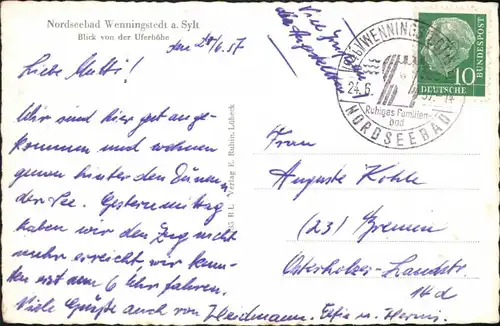 Nordseebad Wenningstedt a. Sylt
Blick von der Uferhöhe
den 24/6.57
Liebe Mutti!
Wir sind hier gut ange-
kommen und wohnen
genau hinter den Dünen
der See. Gestern mittag
haben wir den Zug nicht
mehr erreicht wir konn-
ten erst um 6 Uhr fahren.
Viele Grüße auch von Heidmann. Elfie u.
Viele
Verlag E. Rubin, Lübeck
WENNINGSTEDT
24.6.57.-14
Ruhiges Familien-
bad
NORDSEEBAD
DEUTSCHE BUNDESPOST
10
Frau
Auguste Kohle
(23) Bremen
Osterholzer-Landstr.
14d